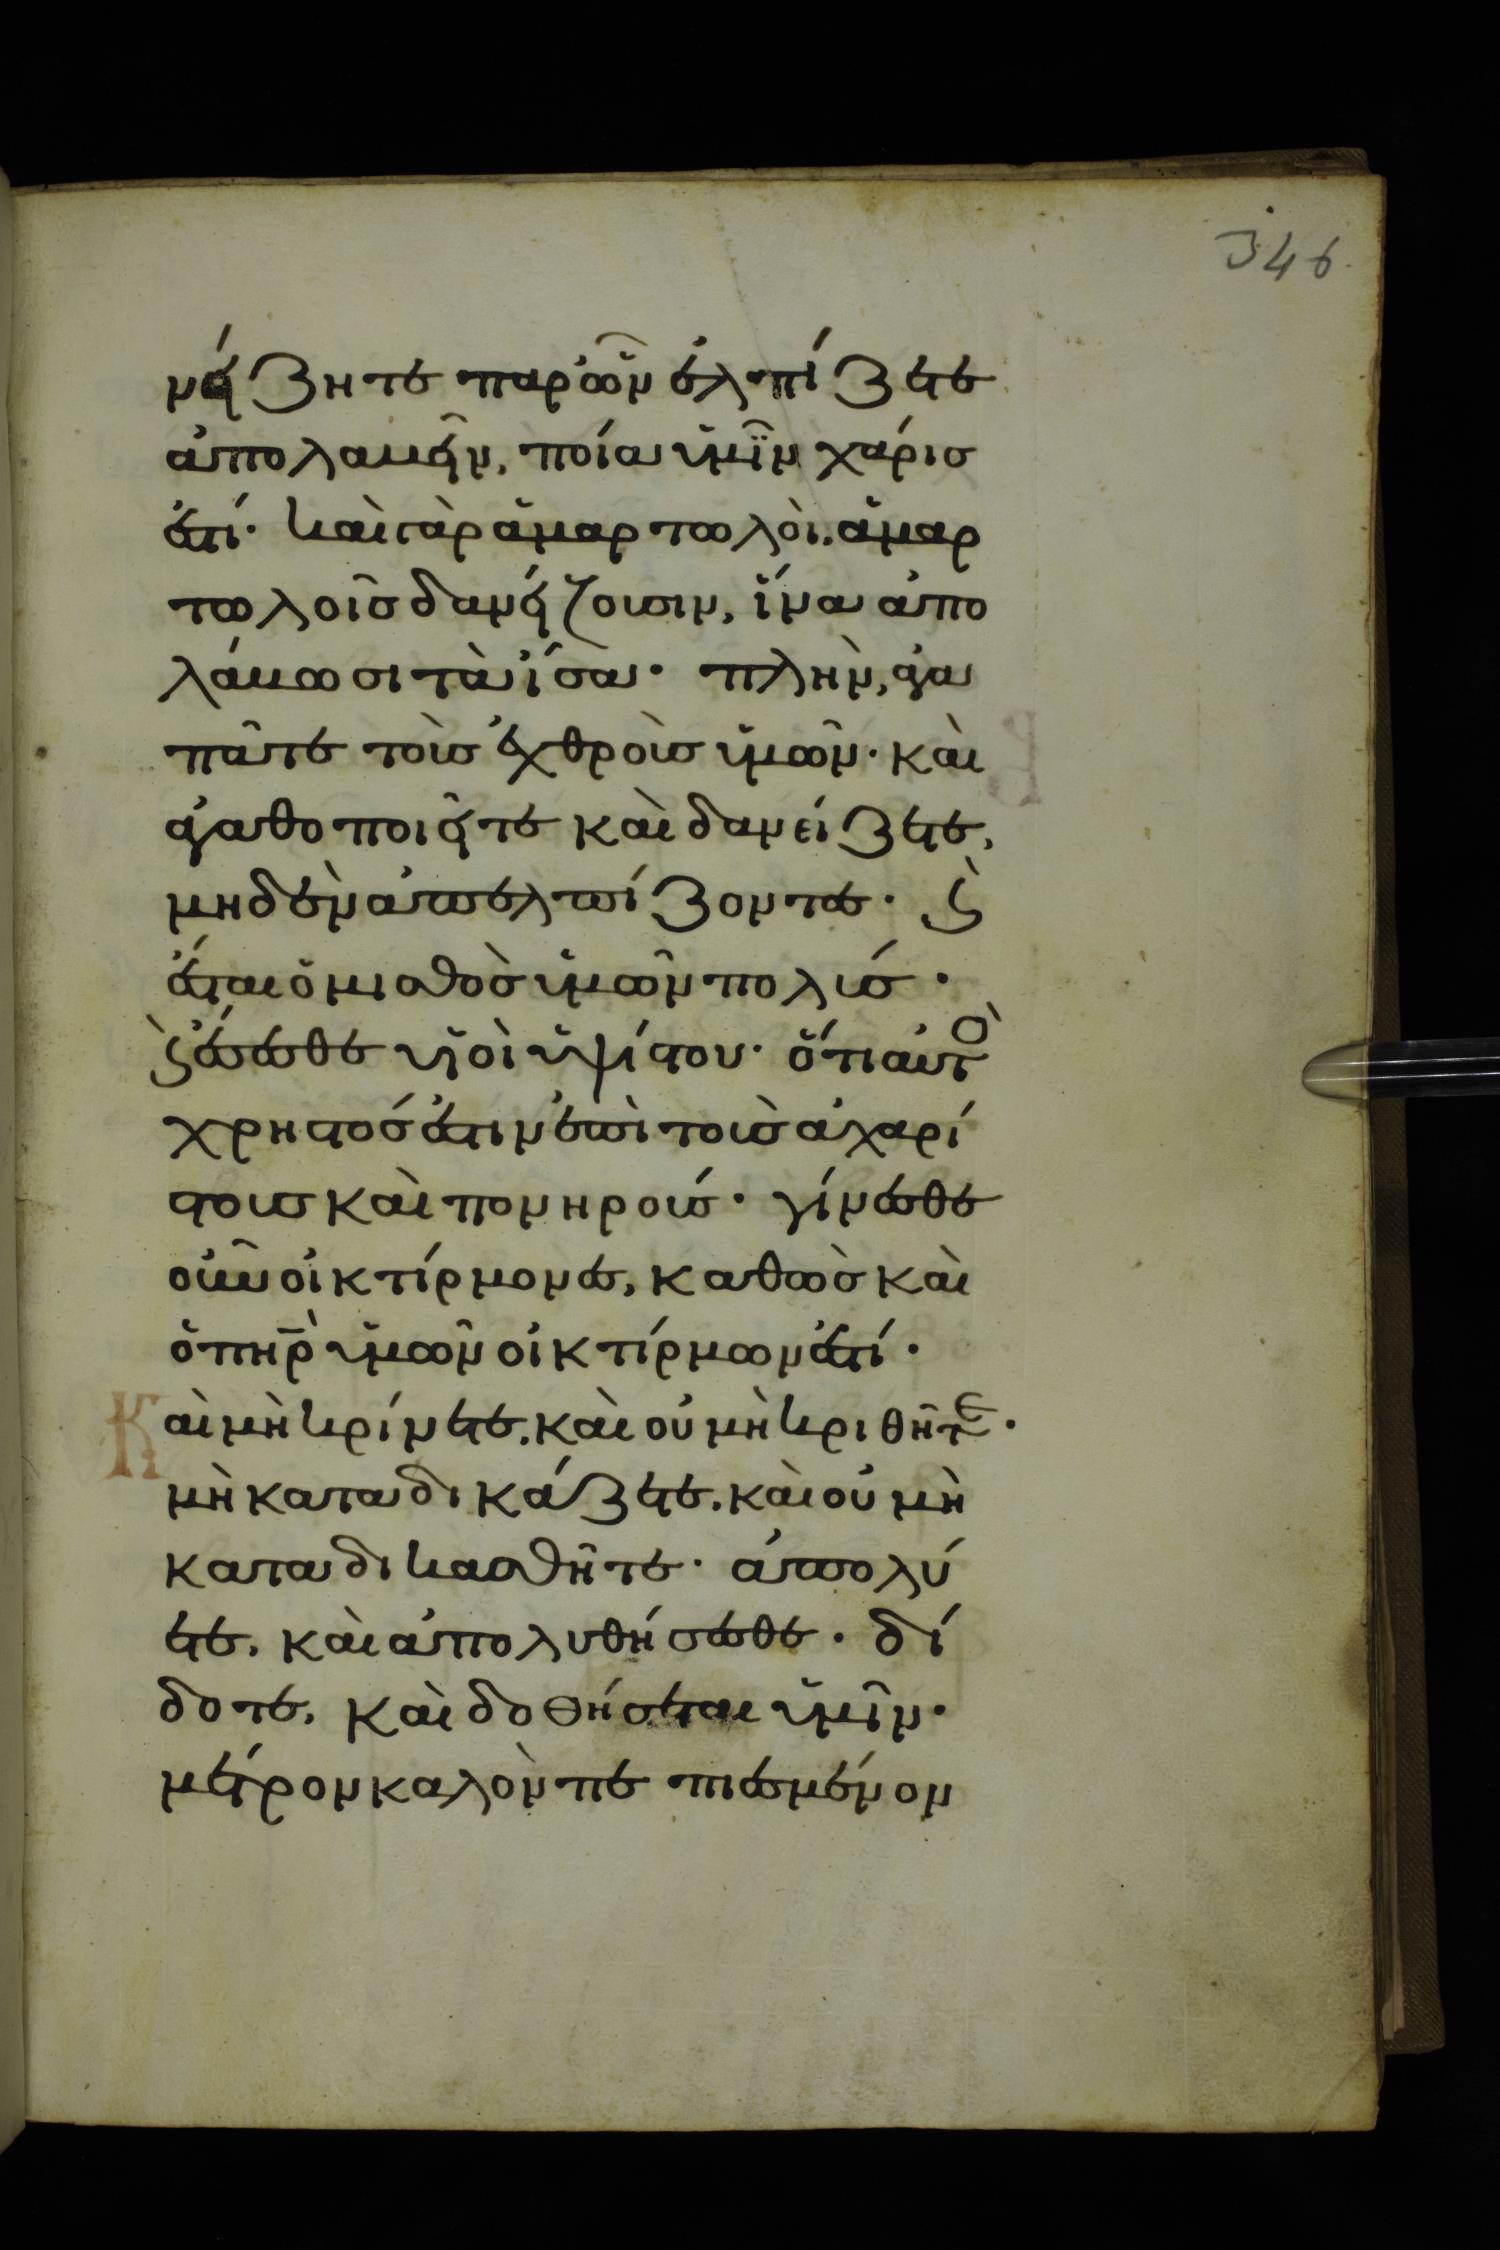 346
νείζητε παρ' ὧν ἐλπίζετε
ἀπολαβεῖν, ποία ὑμῖν χάρις
ἐστί· καὶ γὰρ ἁμαρτωλοὶ, ἁμαρ
τωλοῖς δανείζουσιν, ἵνα ἀπο
λάβωσι τὰ ἴσα· πλὴν, ἀγα
πᾶτε τοὺς ἐχθροὺς ὑμῶν· καὶ
ἀγαθοποιεῖτε καὶ δανείζετε,
μηδὲν ἀπελπίζοντες· ϗ
ἔσται ὁ μισθὸς ὑμῶν πολύς·
ϗ ἔσεσθε υἱοὶ ὑψίστου· ὅτι αὐτὸ
χρηστός ἐστιν ἐπὶ τοὺς ἀχαρί
στους καὶ πονηρούς· γίνεσθε
οὖν οἰκτίρμονες, καθὼς καὶ
ὁ πηρ ὑμῶν οἰκτίρμων ἐστί·
Καὶ μὴ κρίνετε, καὶ οὐ μὴ κριθῆτε·
μὴ καταδικάζετε, καὶ οὐ μὴ
καταδικασθῆτε· ἀπολύ
ετε, καὶ ἀπολυθήσεσθε· δί
δοτε, καὶ δοθήσεται ὑμῖν·
μέτρον καλὸν πεπιεσμένον